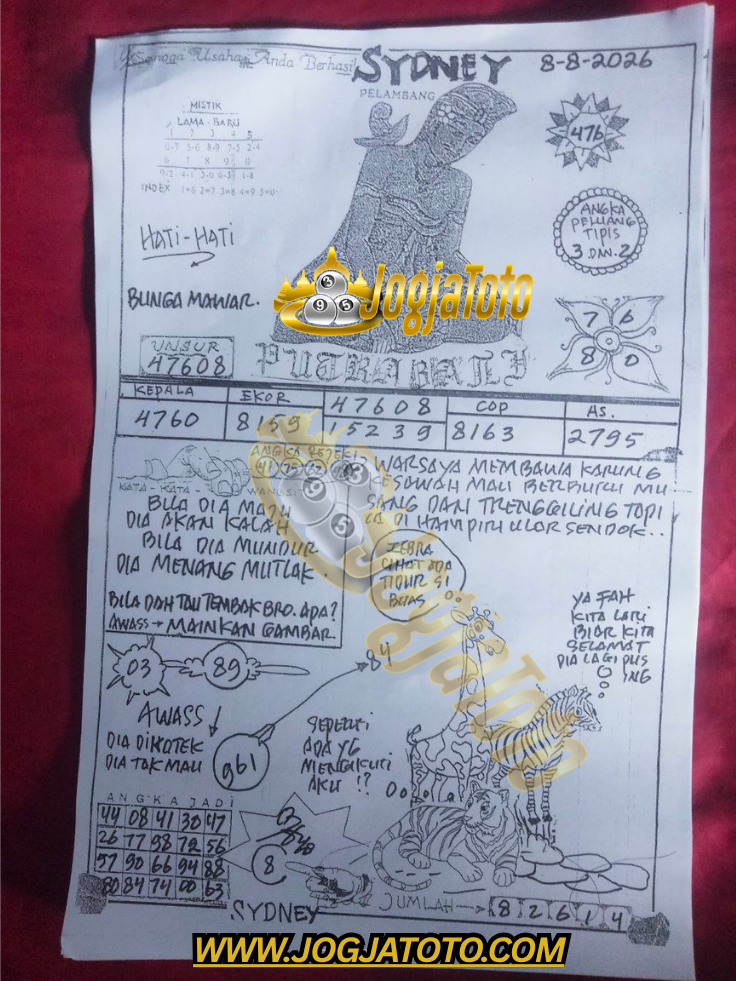 Semoga Usaha Anda Berhasil
SYDNEY
8-8-2026
PELAMBANG
MISTIK
LAMA-BARU
1 2 3 4 5
0-7 5-6 8-9 7-5 2-4
6 7 8 9 0
9-2 4-1 3-0 6-3 1-8
INDEX 1=6 2=7 3=8 4=9 5=0
476
ANGKA
PELUANG
TIPIS
3 DAN 2
HATI-HATI
BUNGA MAWAR.
JogjaToto
7 6
8 0
UNSUR
47608
PUTRA BALI
KEPALA EKOR 47608 COP AS.
4760 8159 15239 8163 2795
ANGKA REJEKI
KATA - KATA - WANGSIT
BILA DIA MAJU
DIA AKAN KALAH
BILA DIA MUNDUR
DIA MENANG MUTLAK.
WARSAYA MEMBAWA KARUNG
KESAWAH MAU BERBURU MU
SANG DAN TRENGGILING TAPI
IA DI HAMPIRI ULOR SENDOK..
BILA DAH TAU TEMBAK BRO. APA?
AWASS → MAINKAN GAMBAR
ZEBRA
LIHAT ADA
TIDUR SI
BUAS
YA FAH
KITA LARI
BIAR KITA
SELAMAT
DIA LAGI PUS
ING
03
89
84
AWASS
DIA DIKOTEK
DIA TAK MAU
961
SEPERTI
ADA YG
MENGIKUTI
AKU !?
ANGKA JADI
44 08 41 30 47
26 77 98 72 56
57 90 66 94 88
80 84 74 00 63
8
JUMLAH → 8 2 6 1 4
SYDNEY
JogjaToto
WWW.JOGJATOTO.COM